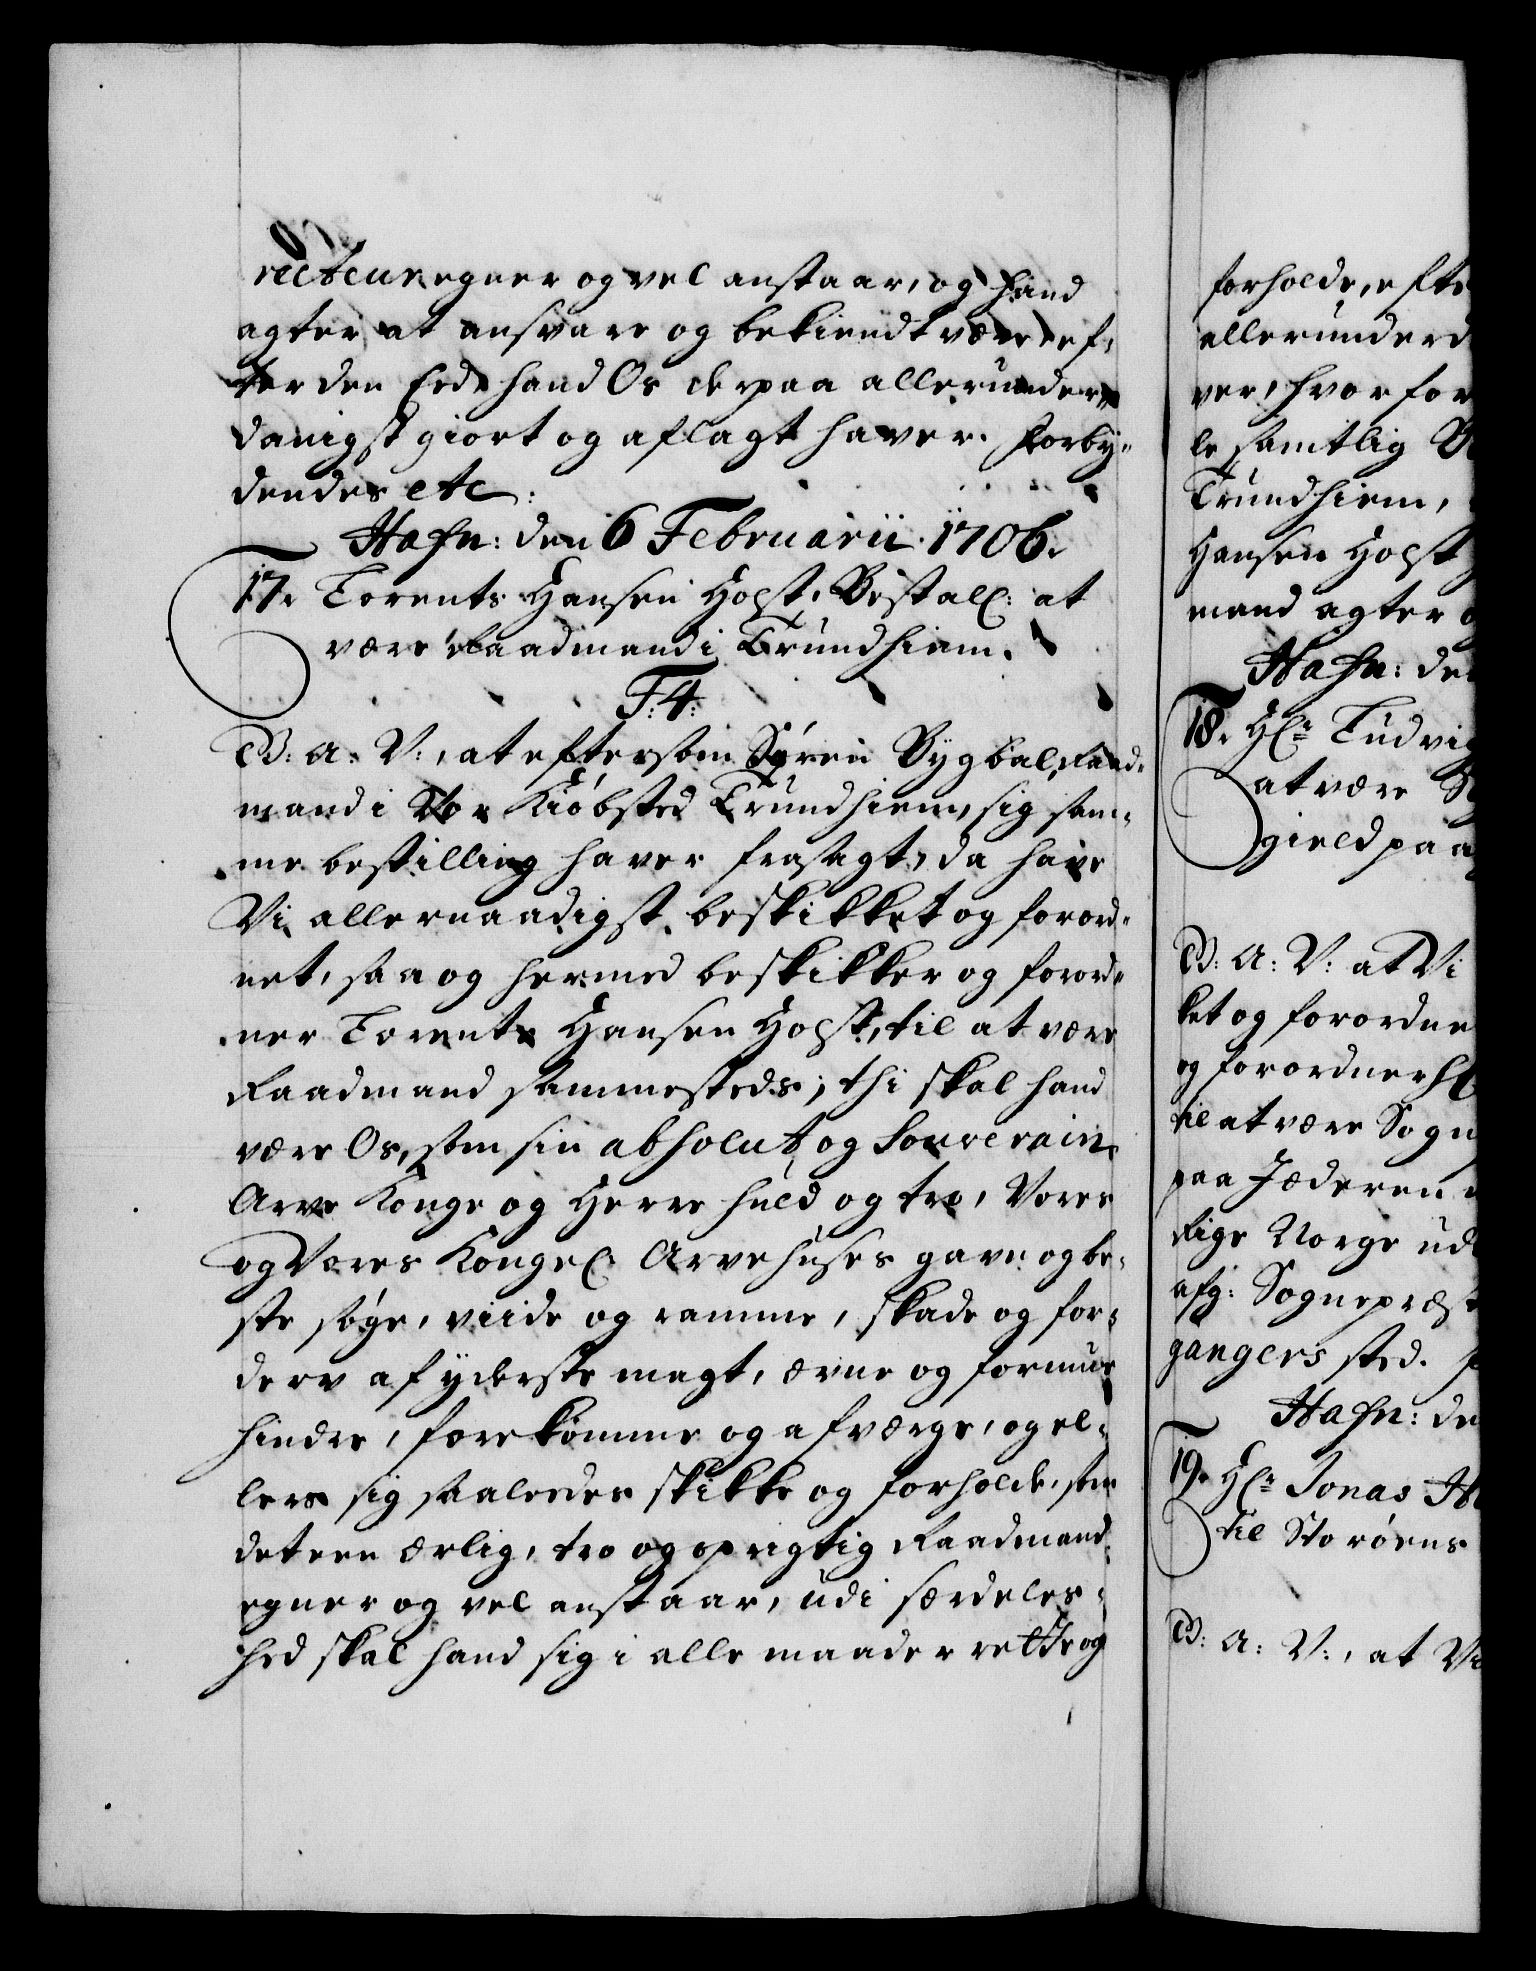 recteur egner og vel anstaar, og hand
agter at ansvare og bekiendt være ef-
ter den Eed hand Os derpaa allerunder-
danigst giort og aflagt haver. Forby-
dendes etc:
Hafn: den 6 Februarii. 1706.
17. Lorents Hansen Holst, Bestall: at
være Raadmand i Trundhiem.
F: 4:
G: A: V:, at eftersom Søren Bygbal, Raad-
mand i Vor Kiøbsted Trundhiem, sig sam-
me bestilling haver frasagt, da have
Vi allernaadigst beskikket og forord-
net, saa og hermed beskikker og forord-
ner Lorents Hansen Holst, til at være
Raadmand sammesteds; thi skal hand
være Os, som sin absolut og Souverain
Arve Konge og Herre huld og tro, Vores
og Vores Kongel: Arvehuses gavn og be-
ste søge, viide og ramme, skade og for-
derv af yderste magt, ævne og formue
hindre, forekomme og afværge, og el-
lers sig saaledes skikke og forholde, som
det een ærlig, tro og oprigtig Raadmand
egner og vel anstaar, udi særdeles-
hed skal hand sig i alle maader rette og
forholde, efte
allerunderd
ver, hvorfor
le samtlig
Trundhiem,
Hansen Holst
mand agter
Hafn: den
18. Hr: Ludvig
at være
gield paa
G: A: V: at Vi
ket og forordne
og forordner H
til at være Sogn
paa Jæderen
Rige Norge ud
afg: Sognepræst
gangers sted.
Hafn: de
19. Hr: Jonas
til Storøens
G: A: V:, at Vi